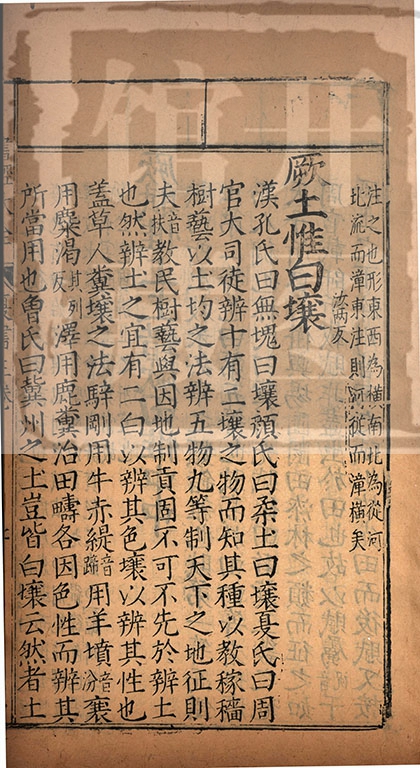 注之也形東西為橫南北為從河
北流而漳東注則河從而漳橫矣
厥土惟白壤汝兩反
漢孔氏曰無塊曰壤顏氏曰柔土曰壤夏氏曰周
官大司徒辨十有二壤之物而知其種以教稼穡
樹藝以土圴之法辨五物九等制天下之地征則
夫音扶教民樹藝與因地制貢固不可不先於辨土
也然辨土之宜有二白以辨其色壤以辨其性也
蓋草人糞壤之法騂剛用牛赤緹音蹄用羊墳音汾壤
用麋渴其列反澤用鹿糞治田疇各因色性而辨其
所當用也魯氏曰冀州之土豈皆白壤云然者土